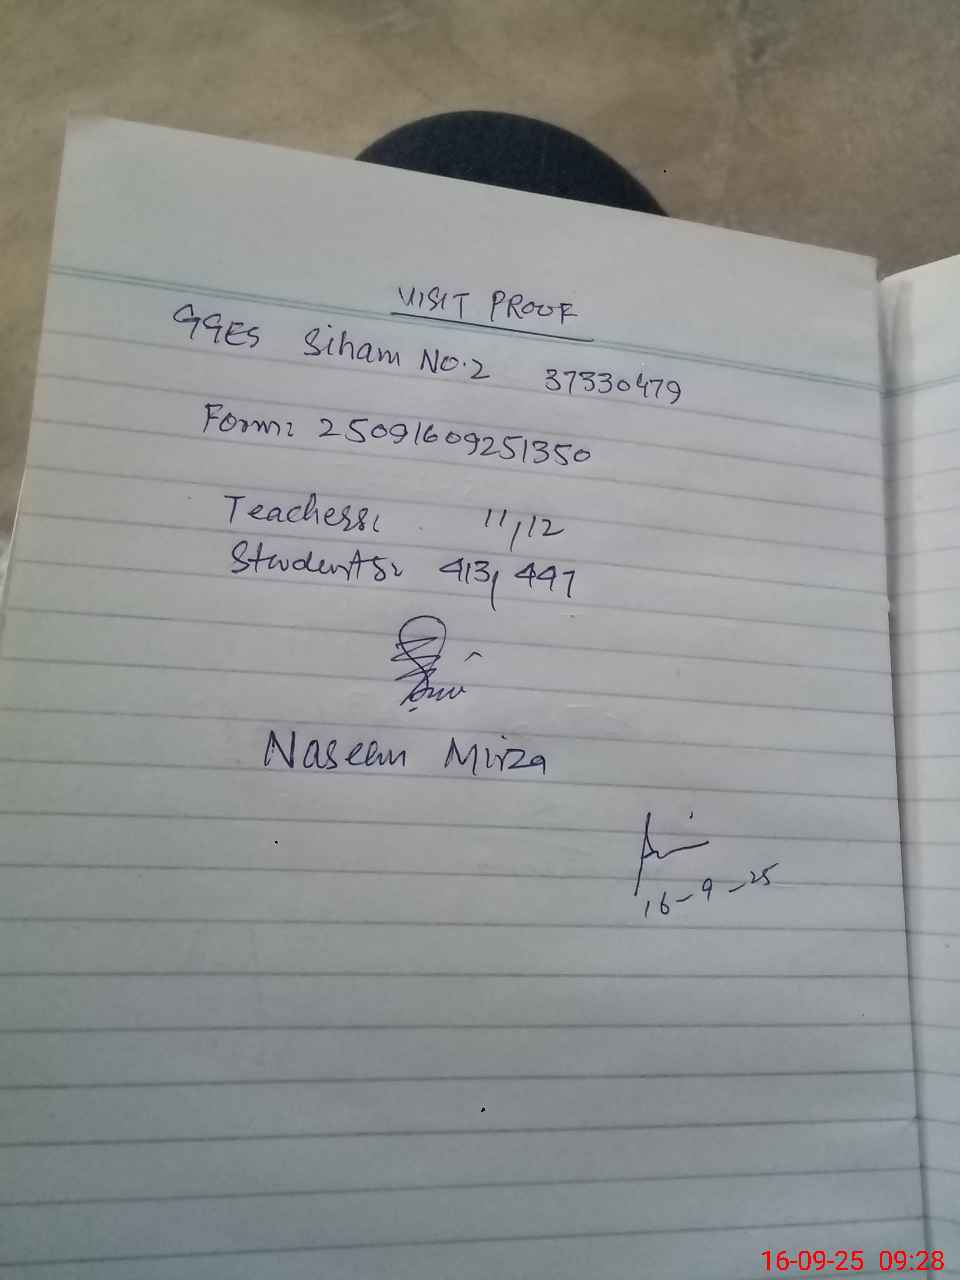 VISIT PROOF
GGES Siham No.2 37330479
Form: 25091609251350
Teachers: 11, 12
Students: 413, 447
Naseem Mirza
16-9-25
16-09-25 09:28